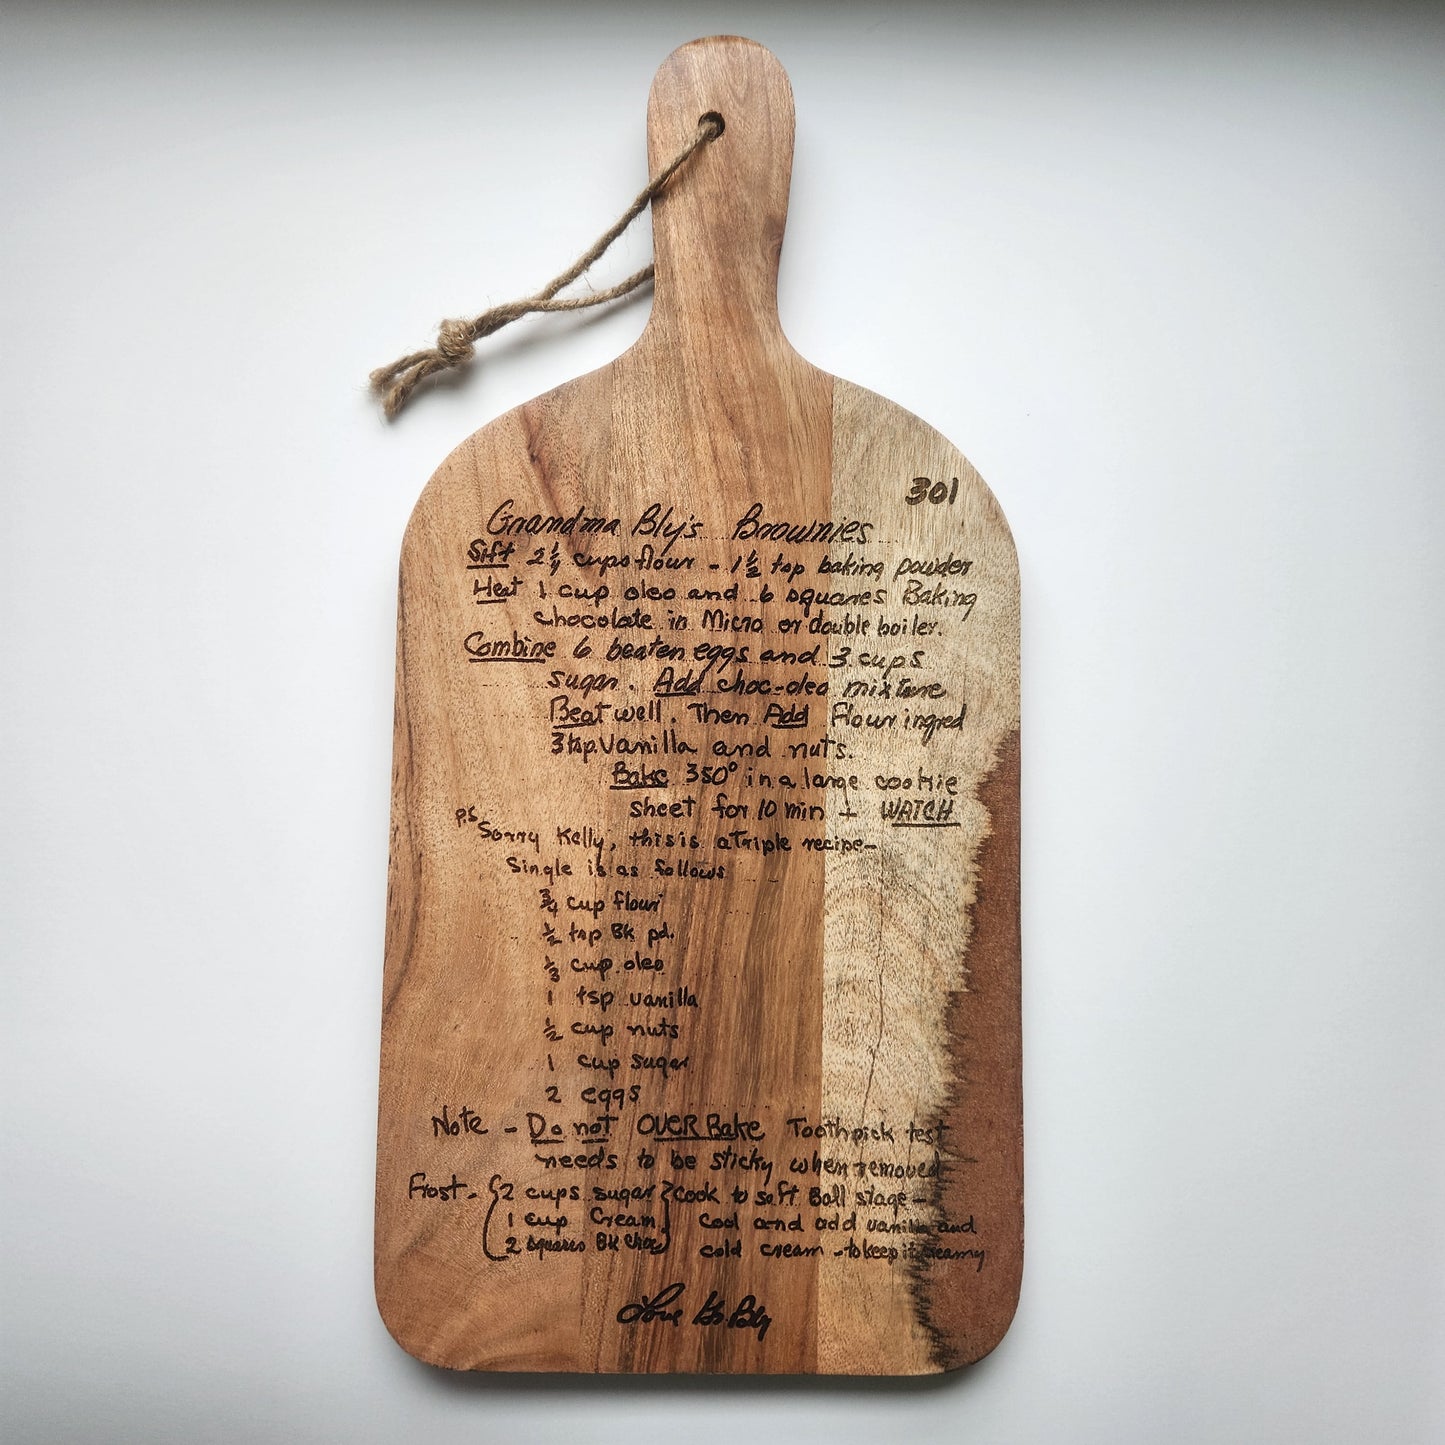 301
Grandma Bly's Brownies
Sift 2 1/4 cups flour - 1 1/2 tsp baking powder
Heat 1 cup oleo and 6 squares Baking
chocolate in Micro or double boiler.
Combine 6 beaten eggs and 3 cups
sugar. Add choc-oleo mixture
Beat well. Then Add Flour ingred
3 tsp. Vanilla and nuts.
Bake 350° in a large cookie
sheet for 10 min + WATCH
P.S Sorry Kelly, this is a Triple recipe-
Single is as follows
3/4 cup flour
1/2 tsp BK pd.
1/3 cup oleo
1 tsp vanilla
1/2 cup nuts
1 cup sugar
2 eggs
Note - Do not OVER Bake Toothpick test
needs to be sticky when removed
Frost - {2 cups sugar} cook to soft Ball stage -
1 cup Cream cool and add vanilla and
2 squares BK choc cold cream - to keep it creamy
Love Gr. Bly